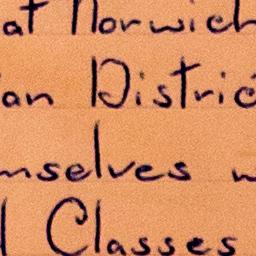 at Norwich
an Distric
mselves w
l Classes